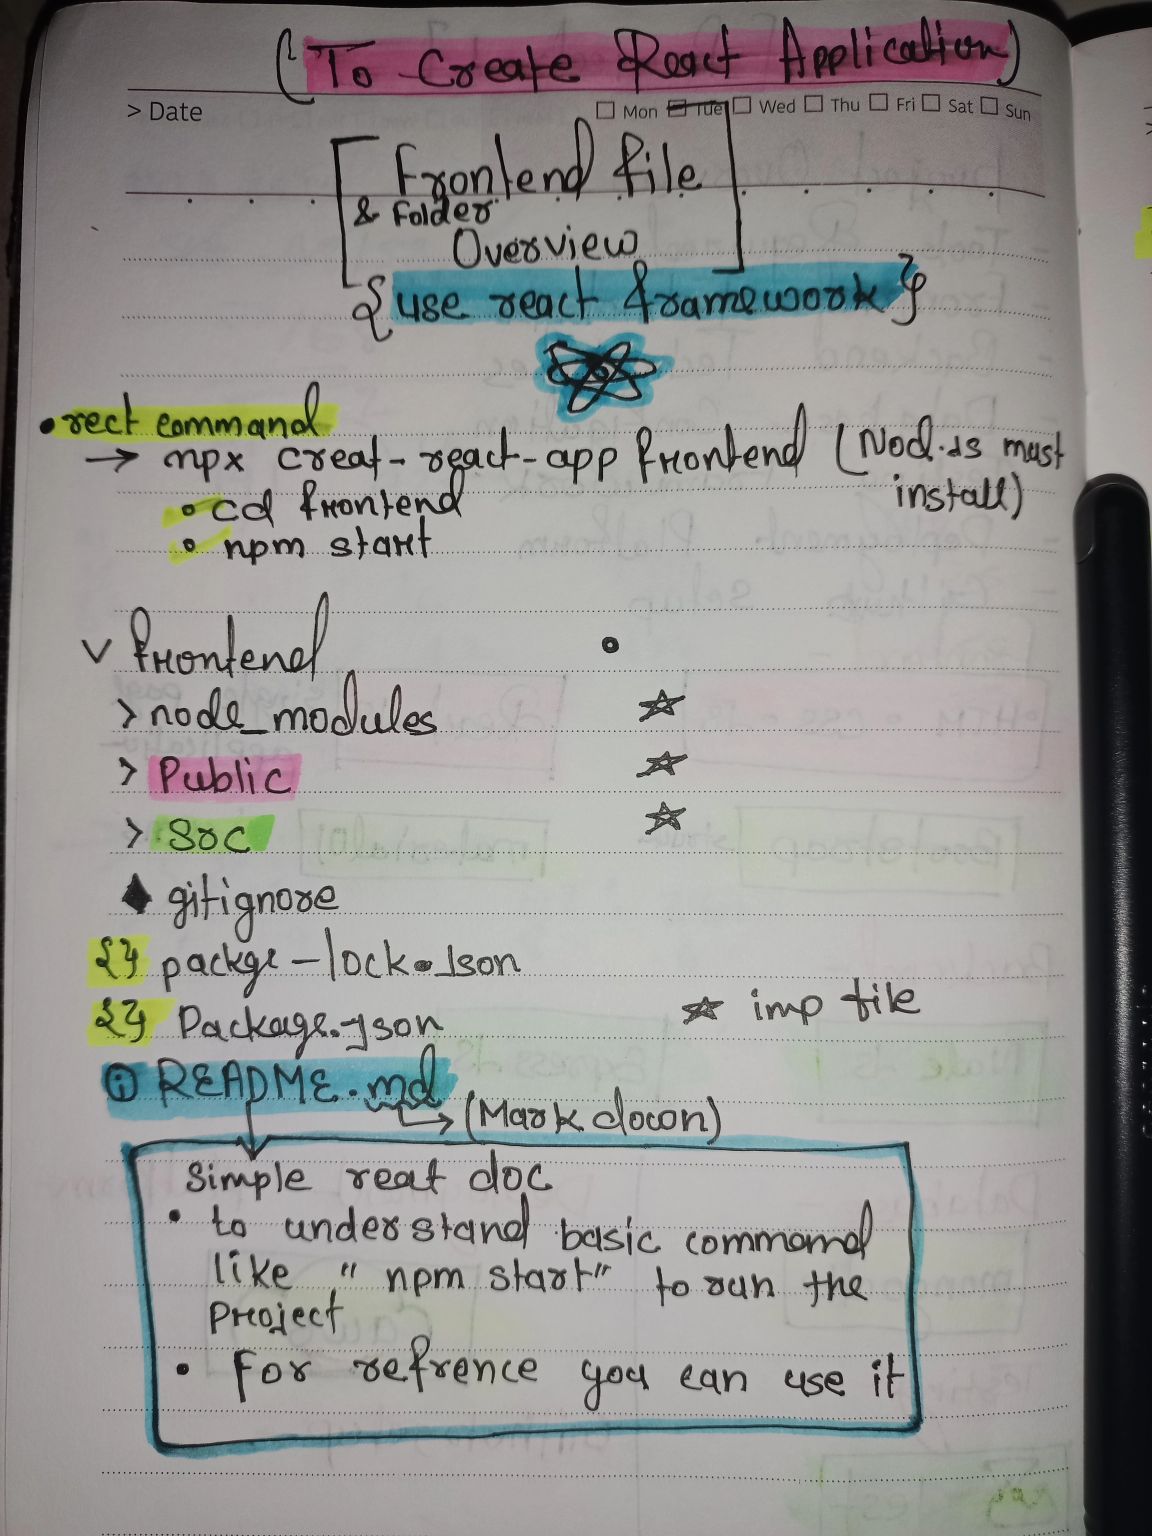 (To Create React Application)
> Date
Mon Tue Wed Thu Fri Sat Sun
Frontend file
& Folder
Overview
{use react framework}
• rect command
→ npx creat-react-app frontend (Nod.js must
install)
• cd frontend
• npm start
v frontend
> node_modules
> Public
> Src
◆ gitignore
{} packge-lock.Json
{} Package.json
★ imp file
ⓘ README.md
→ (Markdown)
Simple reat doc
• to understand basic command
like "npm start" to run the
Project
• For refrence you can use it